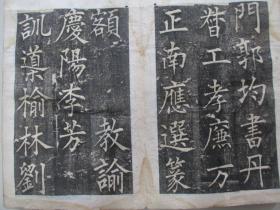 門郭均書丹
督工孝廉万
正南應選篆
額　教諭
慶陽李芳
訓導榆林劉